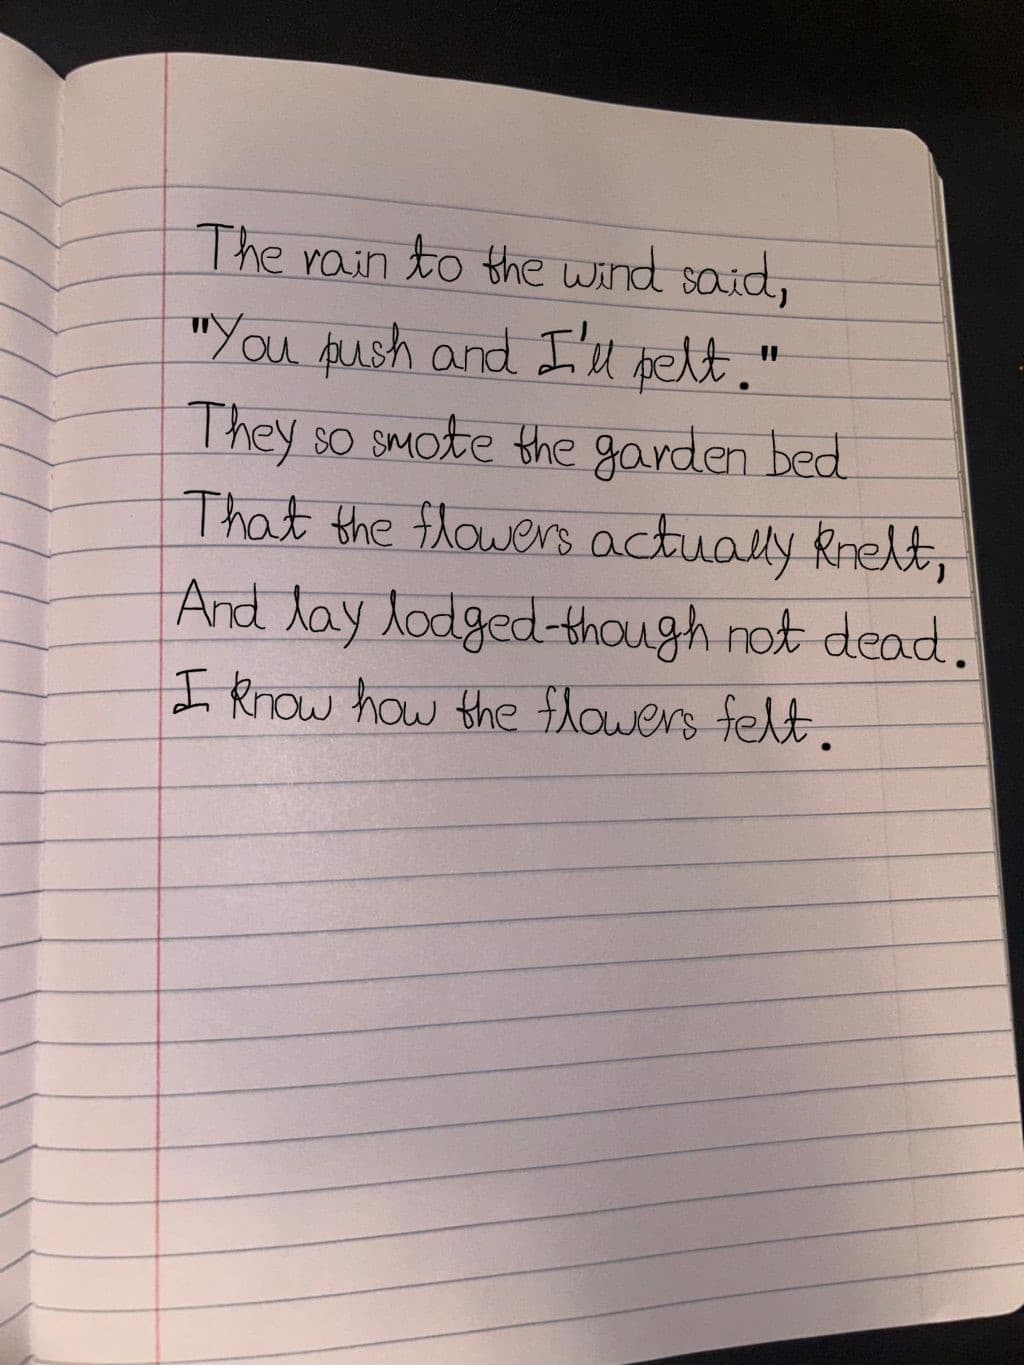 The rain to the wind said,
"You push and I'll pelt."
They so smote the garden bed
That the flowers actually knelt,
And lay lodged-though not dead.
I know how the flowers felt.